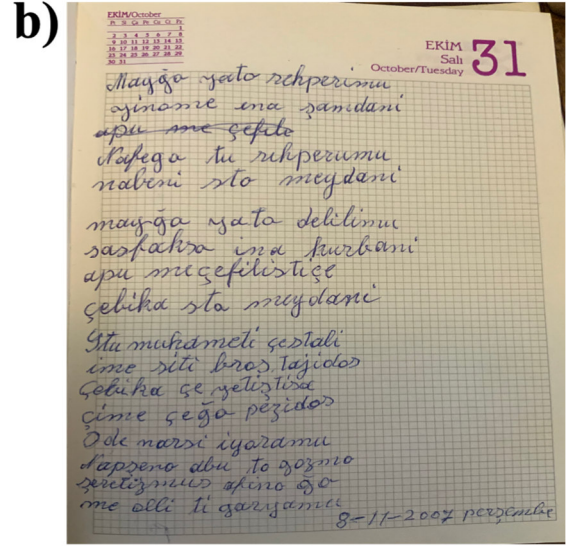 b)
EKİM/October
Pt Sl Ça Pe Cu Ct Pz
1
2 3 4 5 6 7 8
9 10 11 12 13 14 15
16 17 18 19 20 21 22
23 24 25 26 27 28 29
30 31
EKİM
Salı
October/Tuesday
31
Mayğo yato rehperimu
ayinome ena şamdani
apu me çefile
Nafego tu rehperumu
nabeni sto meydani
mayğa yato delilimu
sasfaksa ena kurbani
apu meçefilistiçe
çebika sto meydani
Stu muhameti çestali
ime siti bros tajidos
Çebika çe yetiştisa
çime çeğo pezidos
Ode narsi iyoramu
Napseno abu to gozmo
seretizmus afino go
me olli ti garyamu
8-11-2007 perşembe